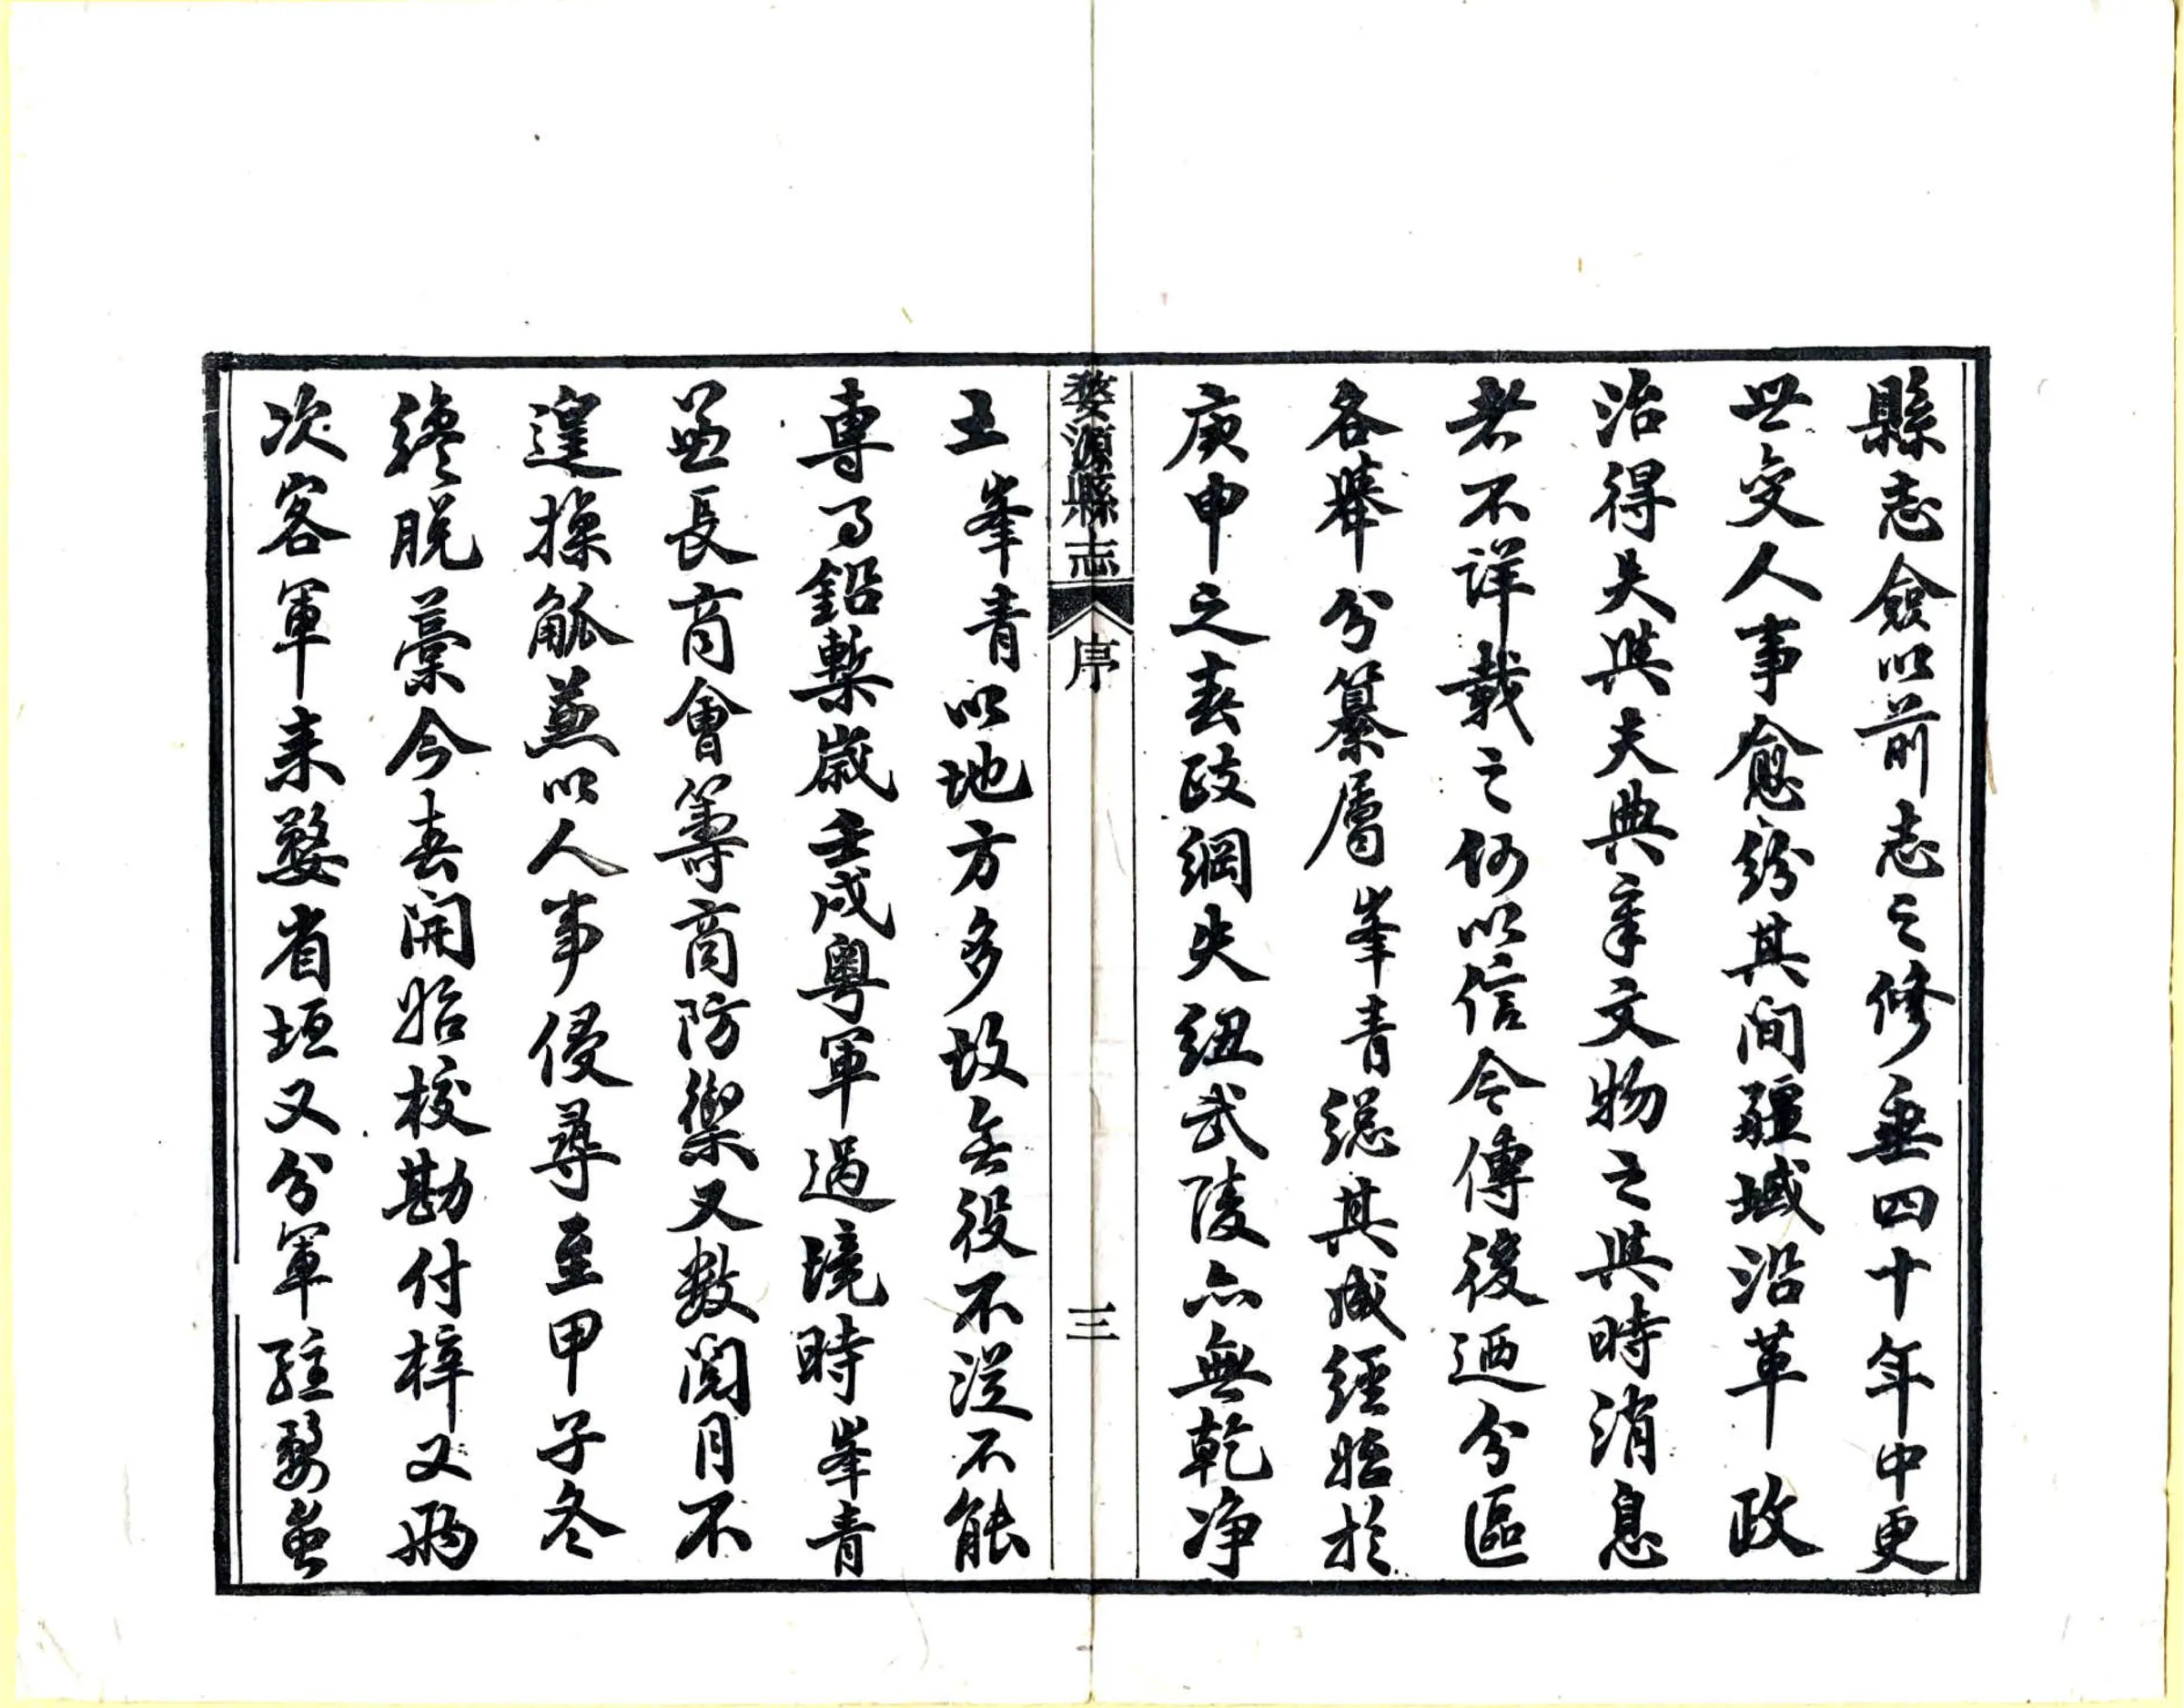 縣志僉以前志之修垂四十年中更
世变人事愈紛其间疆域沿革政
治得失與夫典章文物之與時消息
者不詳載之何以信今傳後迺分區
各舉分纂屬峯青總其成經始於
庚申之春政綱失紐武陵亦無乾淨
婺源縣志
序
三
土峯青以地方多故無役不從不能
專事鉛槧歲壬戌粵軍過境時峯青
並長商會籌商防禦又數閱月不
遑操觚兼以人事侵尋至甲子冬
終脫藁今春開始校勘付梓又兩
次客軍来婺省垣又分軍駐婺魚